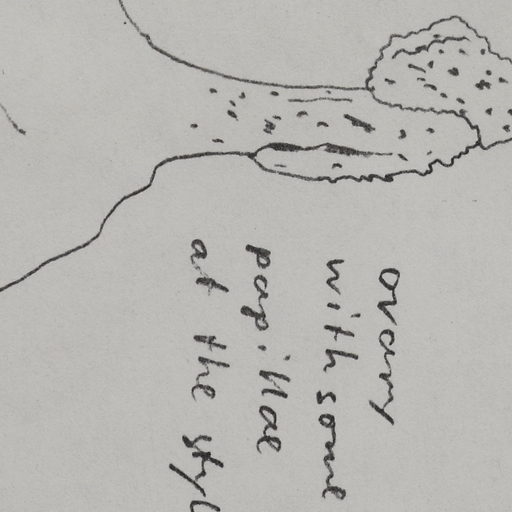 ovary
with some
papillae
at the styl